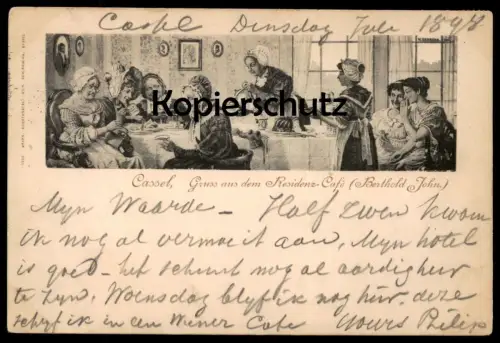 Cassel Dinsdag Juli 1898
Kopierschutz
Cassel, Gruss aus dem Residenz-Café (Berthold John.)
Myn Waarde – Half zwen kwam
ik nog al vermoeit aan, Myn hotel
is goed – het schynt nog al aardig hier
te zyn, Woensdag blyf ik nog hier, deze
schryf ik in een Wiener Cafe Yours Philip